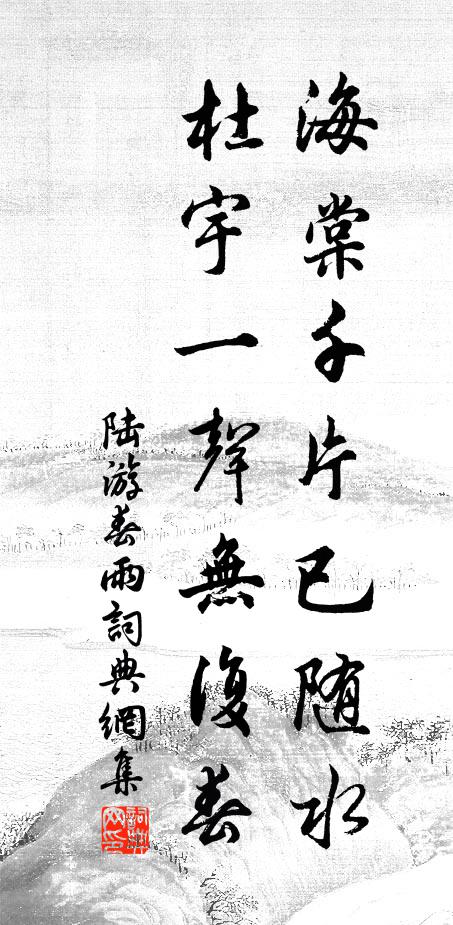 海棠千片已随水
杜宇一聲無復春
陆游春雨詞典網集